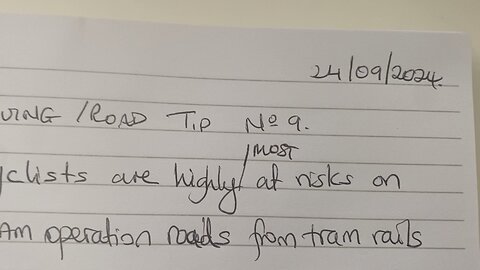 24/09/2024.
VING /ROAD TIP Nº 9.
MOST
yclists are highly / at risks on
Am operation roads from tram rails